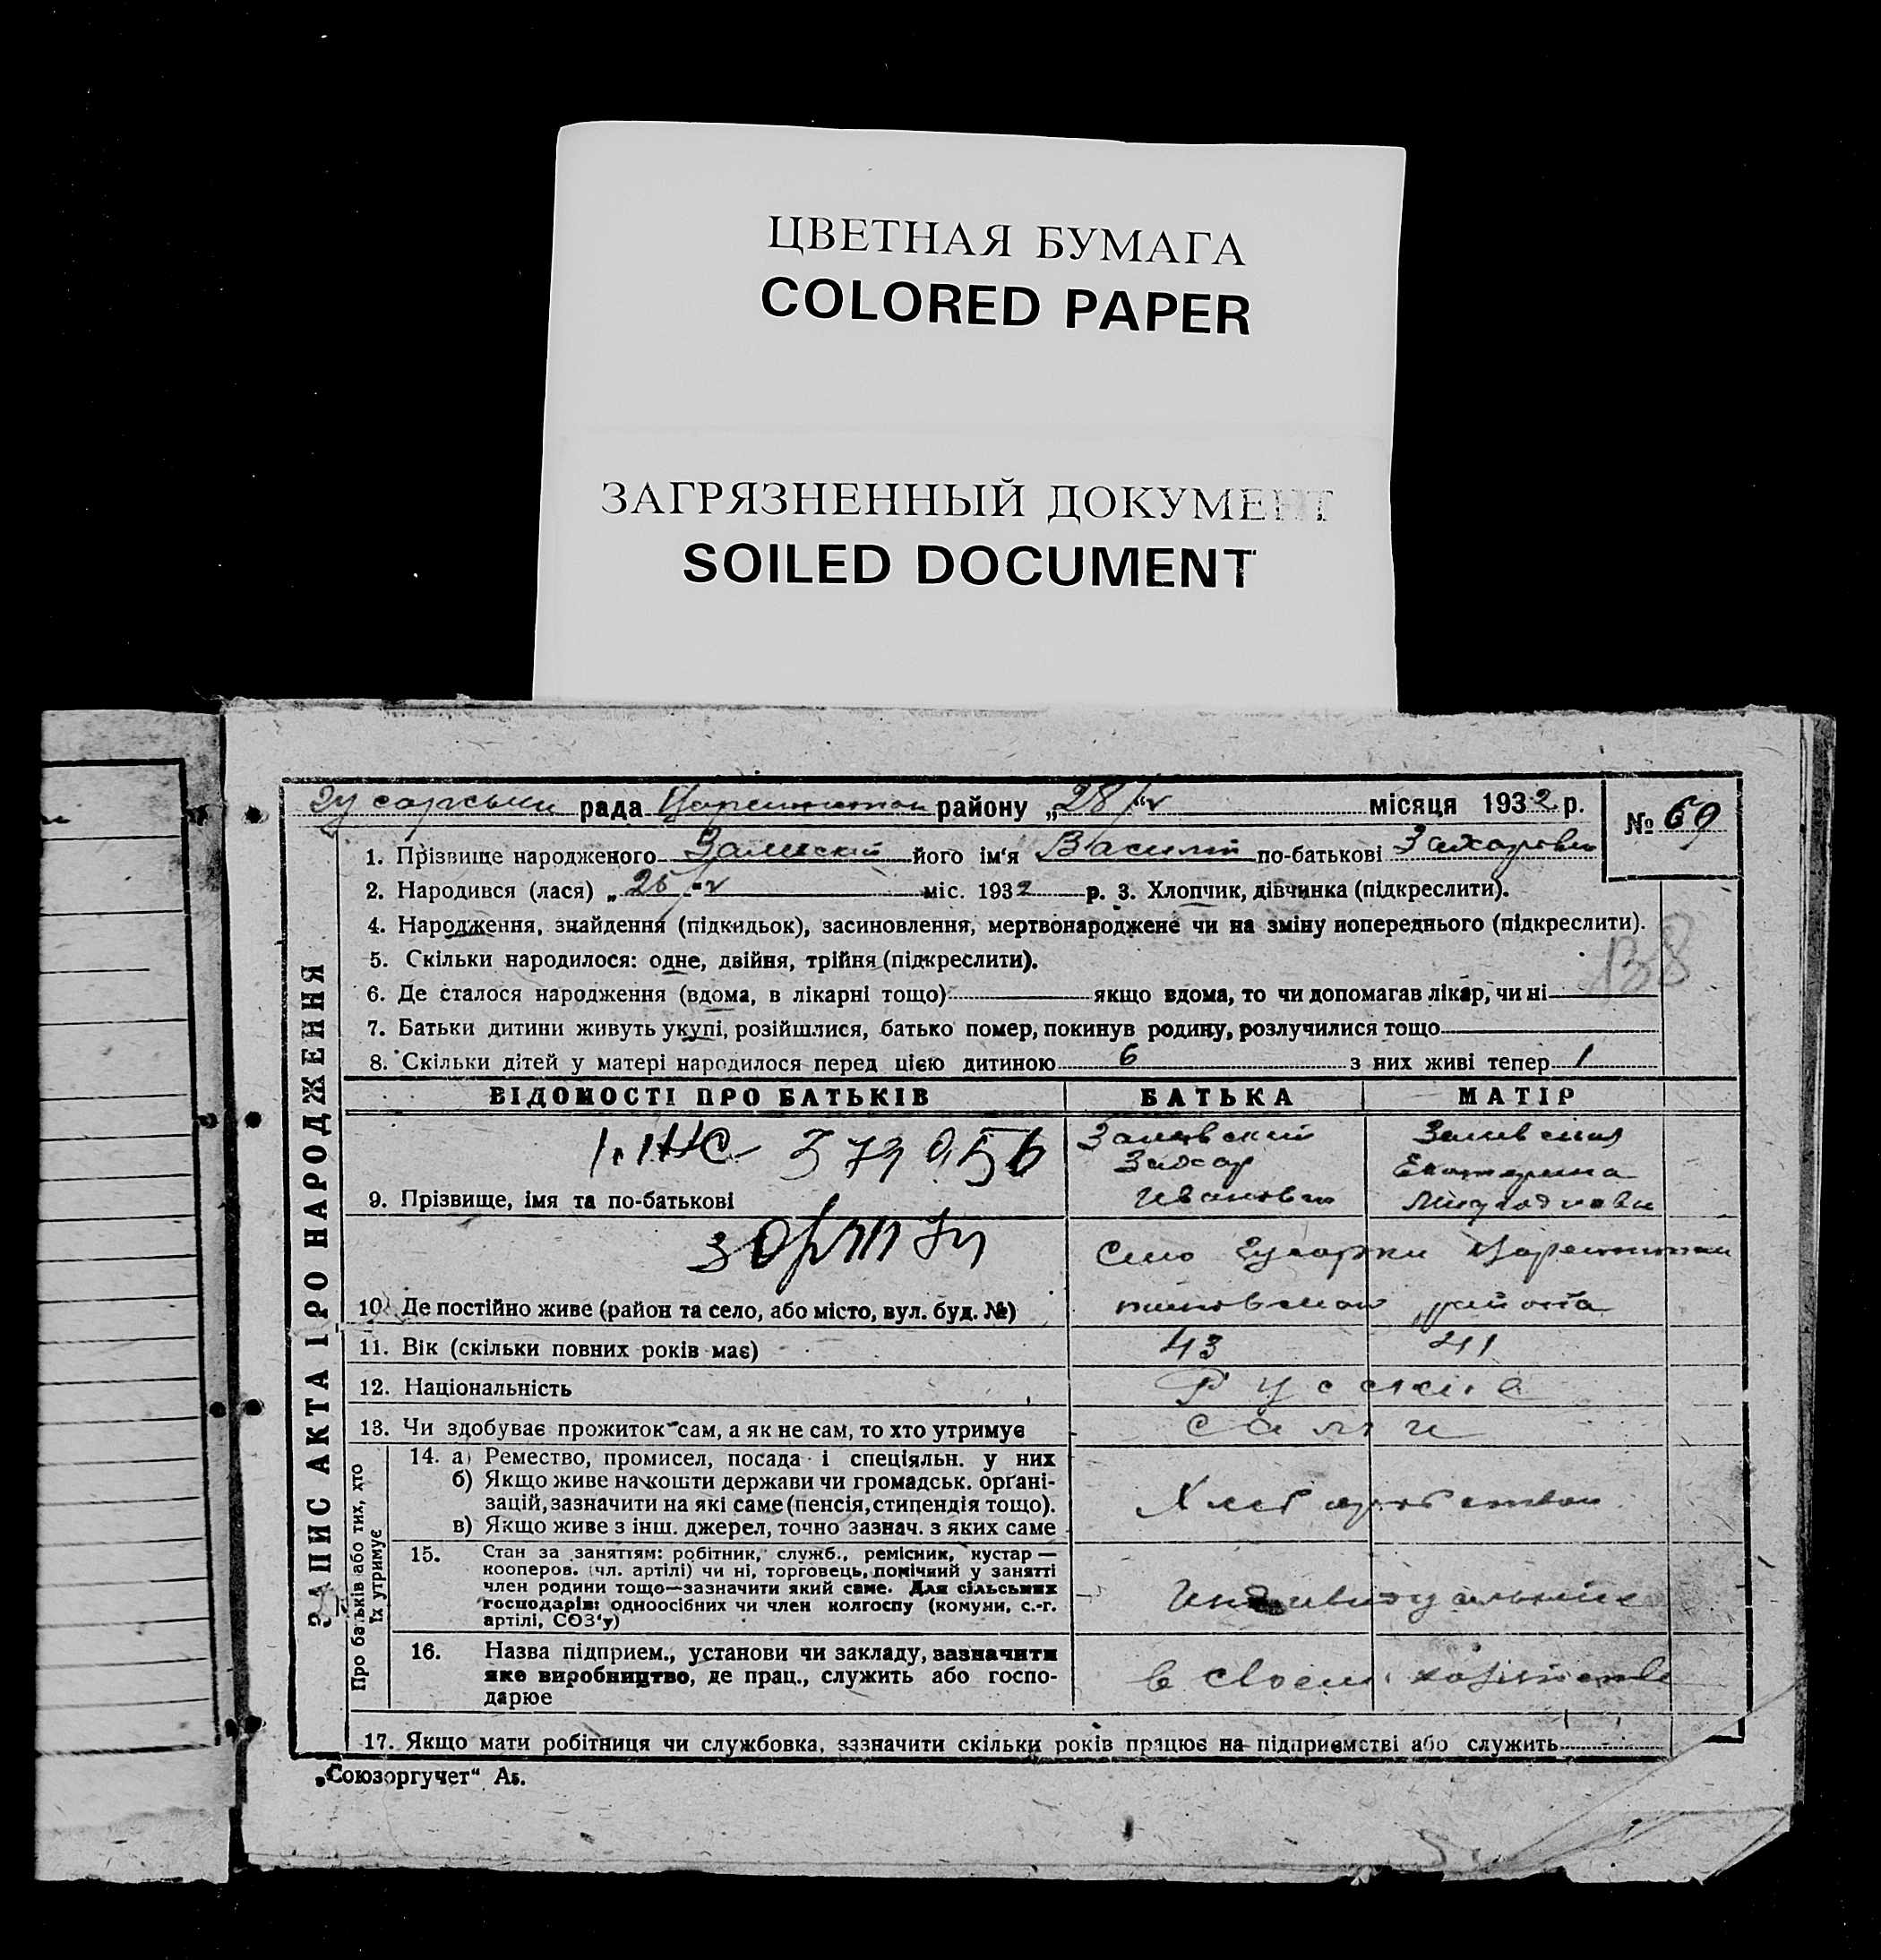 ЦВЕТНАЯ БУМАГА
COLORED PAPER
ЗАГРЯЗНЕННЫЙ ДОКУМЕНТ
SOILED DOCUMENT
рада району „28/V місяця 1932 р.
№ 69
1. Прізвище народженого його ім'я Василий по-батькові Захарович
2. Народився (лася) „25/V міс. 1932 р. 3. Хлопчик, дівчинка (підкреслити).
4. Народження, знайдення (підкидьок), засиновлення, мертвонароджене чи на зміну попереднього (підкреслити).
138
5. Скільки народилося: одне, двійня, трійня (підкреслити).
6. Де сталося народження (вдома, в лікарні тощо) якщо вдома, то чи допомагав лікар, чи ні
7. Батьки дитини живуть укупі, розійшлися, батько помер, покинув родину, розлучилися тощо
8. Скільки дітей у матері народилося перед цією дитиною 6 з них живі тепер 1
ЗАПИС АКТА ПРО НАРОДЖЕННЯ
ВІДОМОСТІ ПРО БАТЬКІВ БАТЬКА МАТІР
Захар Екатерина
9. Прізвище, імя та по-батькові Иванович
Село Гусарки
10. Де постійно живе (район та село, або місто, вул. буд. №) района
11. Вік (скільки повних років має) 43 41
12. Національність Руские
13. Чи здобуває прожиток сам, а як не сам, то хто утримує сами
Про батьків або тих, хто
їх утримує
14. а) Ремество, промисел, посада і спеціяльн. у них
б) Якщо живе на кошти держави чи громадськ. органі-
зацій, зазначити на які саме (пенсія, стипендія тощо).
в) Якщо живе з інш. джерел, точно зазнач. з яких саме
15. Стан за заняттям: робітник, служб., ремісник, кустар —
кооперов. (чл. артілі) чи ні, торговець, помічний у занятті
член родини тощо—зазначити який саме. Для сільських
господарів: одноосібних чи член колгоспу (комуни, с.-г.
артілі, СОЗ'у)
16. Назва підприєм., установи чи закладу, зазначити
яке виробництво, де прац., служить або госпо-
дарює
в своем хозяйстве
17. Якщо мати робітниця чи службовка, зазначити скільки років працює на підприємстві або служить
„Союзоргучет“ Аз.